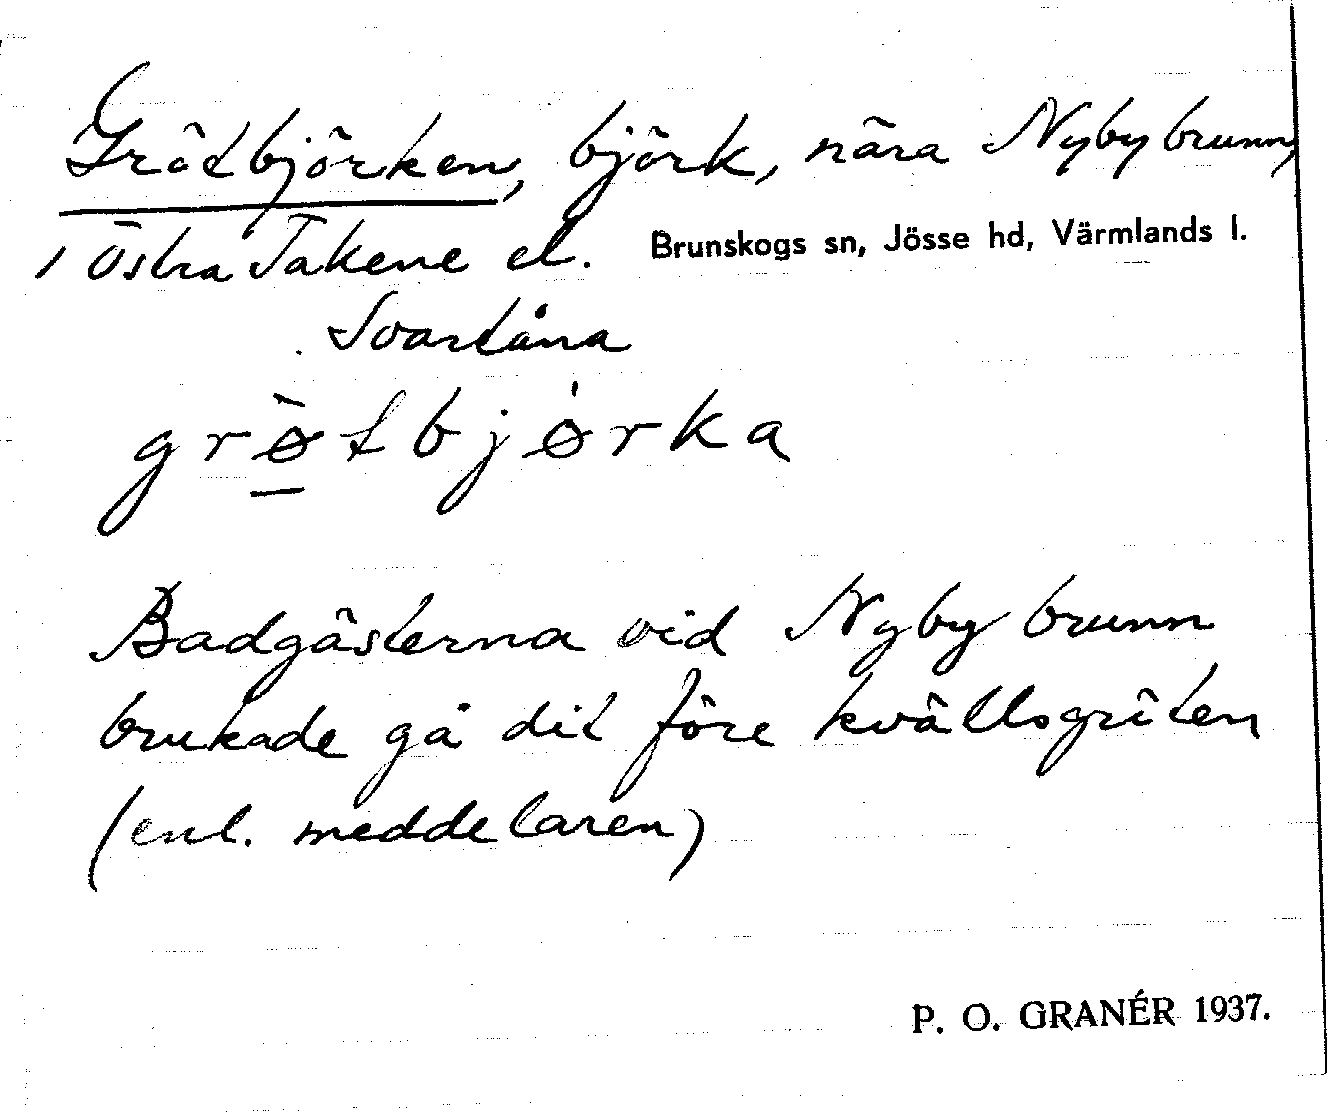 Grötbjörken, björk, nära Nyby brunn,
i Östra Takene el. Brunskogs sn, Jösse hd, Värmlands l.
Svartåna
grø̱̀tbjǿrka
Badgästerna vid Nyby brunn
brukade gå dit före kvällsgröten
(enl. meddelaren)
P. O. GRANÉR 1937.